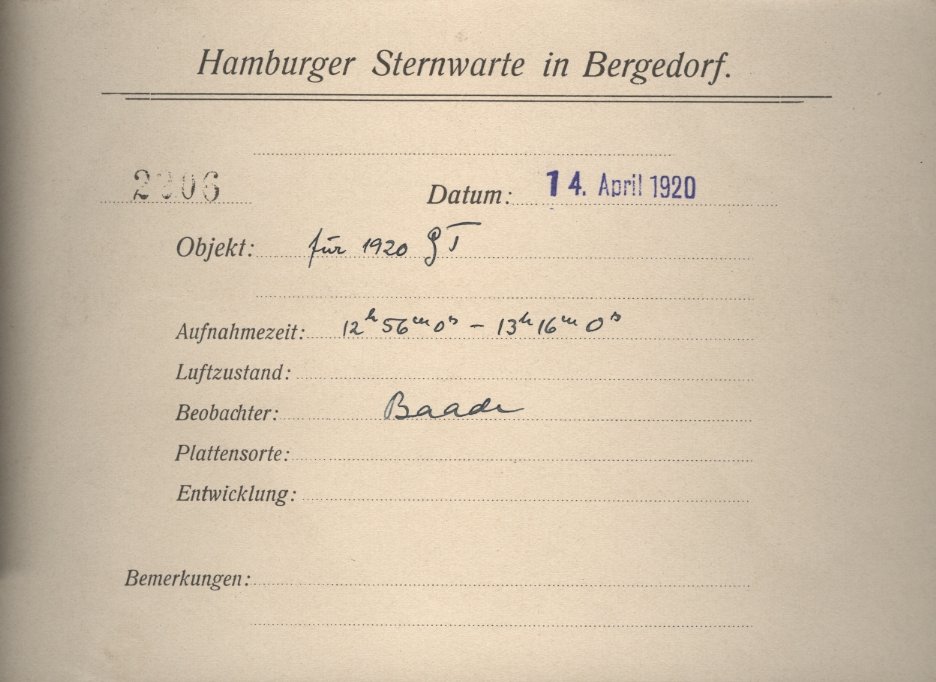 Hamburger Sternwarte in Bergedorf.
Datum: 14. April 1920
Objekt: für 1920 GT
Aufnahmezeit: 12h 56m 0s – 13h 16m 0s
Luftzustand:
Beobachter: Baade
Plattensorte:
Entwicklung:
Bemerkungen: